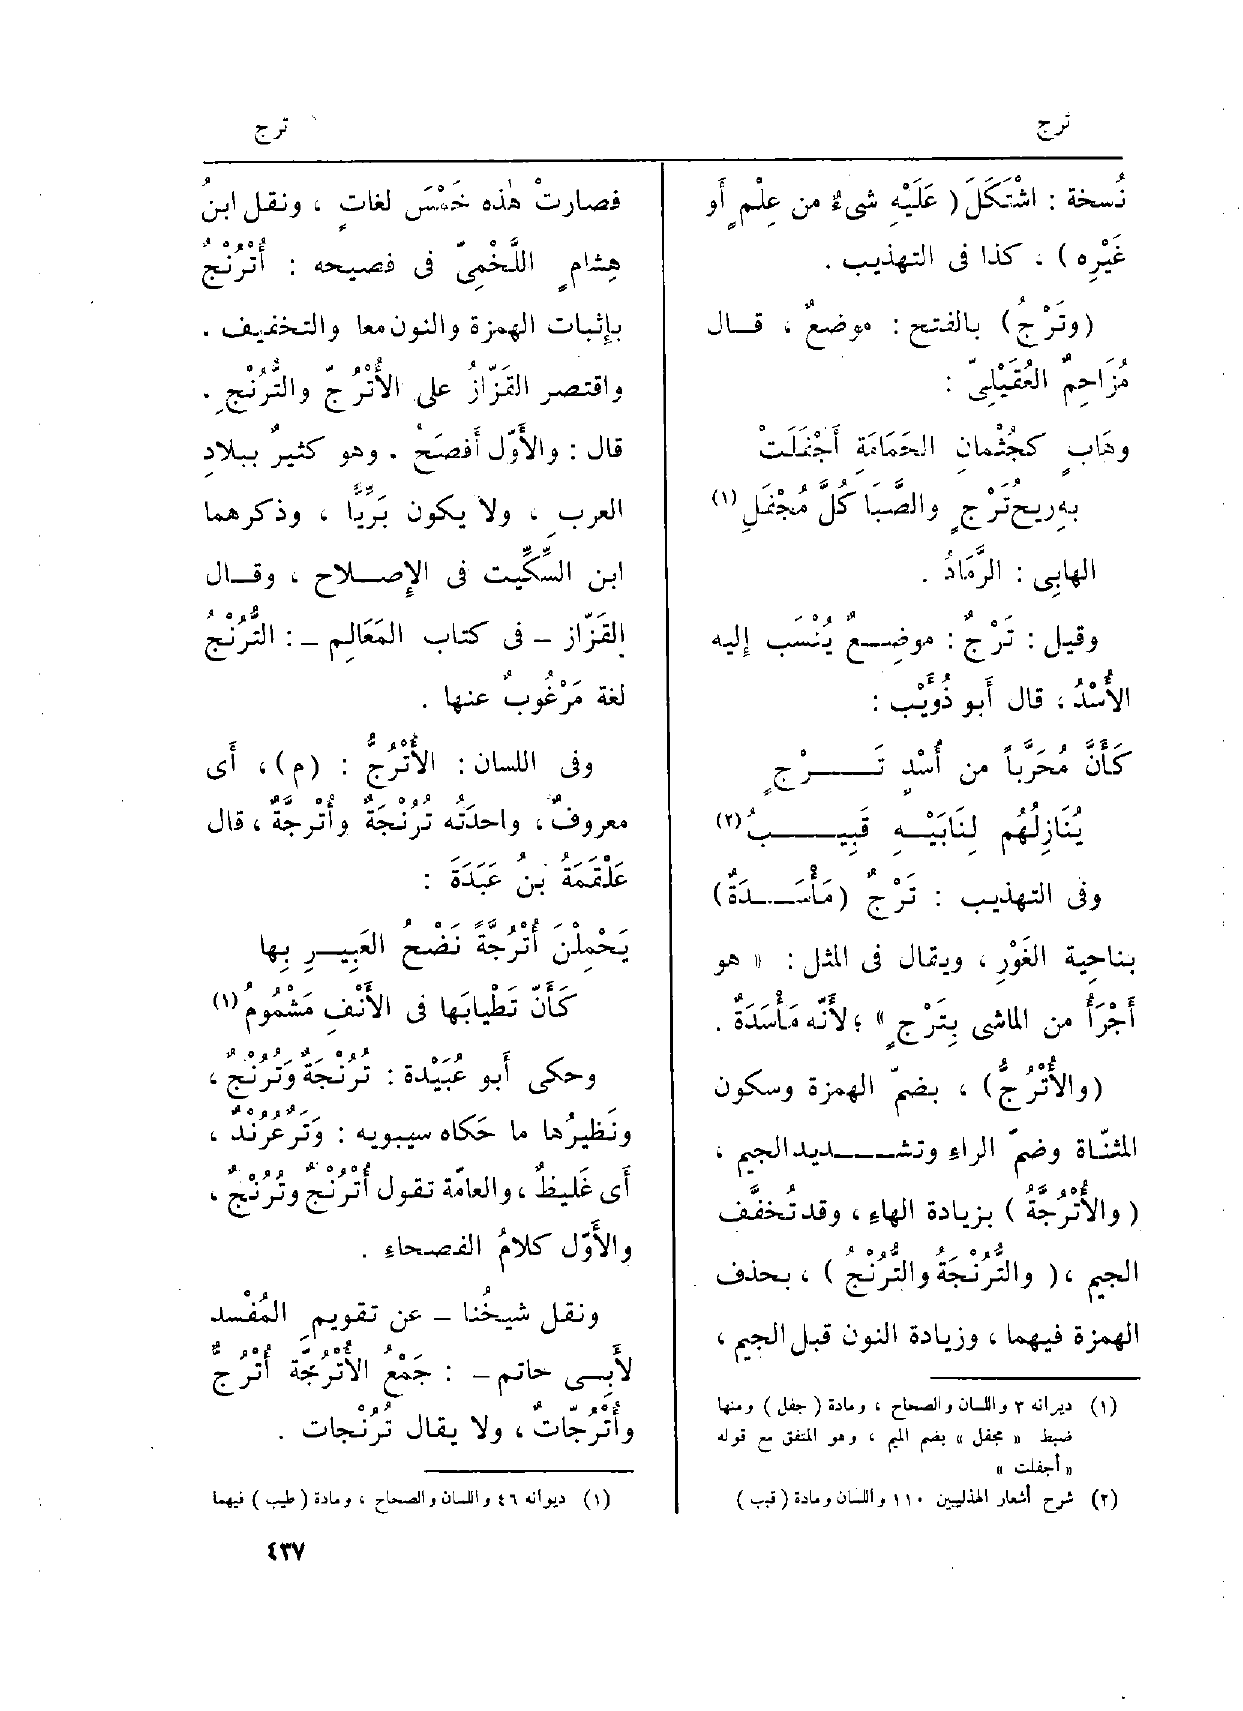 ترج
ترج
نُسخة : اشْتَكَلَ ( عَلَيْهِ شىءٌ من عِلْمٍ أو
غَيْرِه ) ، كذا فى التهذيب .
(وتَرْجُ) بالفتح : موضعٌ ، قــال
مُزَاحِمٌ العُقَيْلِىّ :
وهَابٍ كجُثْمانِ الحَمَامَةِ أَجْفَلَتْ
به رِيحُ تَرْجٍ والصَّبَا كُلَّ مُجْفَلِ (١)
الهابِى : الرَّمَادُ .
وقيل : تَرْجٌ : موضِــعٌ يُنْسَب إليه
الأُسْدُ ، قال أبو ذُؤَيْب :
كأَنَّ مُحَرَّباً من أُسْدِ تَــــرْجٍ
يُنَازِلُهُم لِنَابَيْــهِ قَبِيــــبُ (٢)
وفى التهذيب : تَرْجٌ (مَأْسَــدَةٌ)
بناحِية الغَوْرِ ، ويقال فى المثل : « هو
أَجْرَأُ من الماشى بِتَرْجٍ » ؛ لأَنّه مَأْسَدَةٌ .
(والأُتْرُجُّ) ، بضمّ الهمزة وسكون
المثنّاة وضمّ الراءِ وتشـــديد الجيم ،
( والأُتْرُجَّةُ ) بزيادة الهاءِ ، وقد تُخفَّف
الجيم ، ( والتُّرُنْجَةُ والتُّرُنْجُ ) ، بحذف
الهمزة فيهما ، وزيادة النون قبل الجيم ،
(١) ديوانه ٣ واللسان والصحاح ، ومادة ( جفل ) ومنها
ضبط « مجفل » بضم الميم ، وهو المتفق مع قوله
« أجفلت »
(٢) شرح أشعار الهذليين ١١٠ واللسان ومادة ( قبب )
فصارتْ هٰذه خَمْسَ لغاتٍ ، ونقل ابنُ
هِشامٍ اللَّخْمِىّ فى فصيحه : أُتْرُنْجُ
بإِثبات الهمزة والنون معا والتخفيف .
واقتصر القَزّازُ على الأُتْرُجّ والتُّرُنْجِ .
قال : والأَوّل أَفصَحُ . وهو كثيرٌ ببلادِ
العربِ ، ولا يكون بَرِّيًّا ، وذكرهما
ابن السِّكِّيت فى الإِصــلاح ، وقــال
القَزّاز – فى كتاب المَعَالِم – : التُّرُنْجُ
لغة مَرْغُوبٌ عنها .
وفى اللسان : الأُتْرُجُّ : (م) ، أَى
معروفٌ ، واحدَتُه تُرُنْجَةٌ وأُتْرجَّةٌ ، قال
عَلْقَمَةُ بنُ عَبَدَةَ :
يَحْمِلْنَ أُتْرُجَّةً نَضْحُ العَبِيــرِ بِها
كأَنّ تَطْيابَها فى الأَنْفِ مَشْمُومُ (١)
وحكى أَبو عُبَيْدة : تُرُنْجَةٌ وتُرُنْجٌ ،
ونَظيرُها ما حَكاه سيبويه : وَتَرٌ عُرُنْدٌ ،
أَى غَليظٌ ، والعامّة تقول أُتْرُنْجٌ وتُرُنْجٌ ،
والأَوّل كلامُ الفصحاءِ .
ونقل شيخُنا – عن تقويم المُفْسد
لأَبِــى حاتم – : جَمْعُ الأُتْرُجّة أُتْرُجٌّ
وأُتْرُجّاتٌ ، ولا يقال تُرُنْجات .
(١) ديوانه ٤٦ واللسان والصحاح ، ومادة ( طيب ) فيهما
٤٣٧